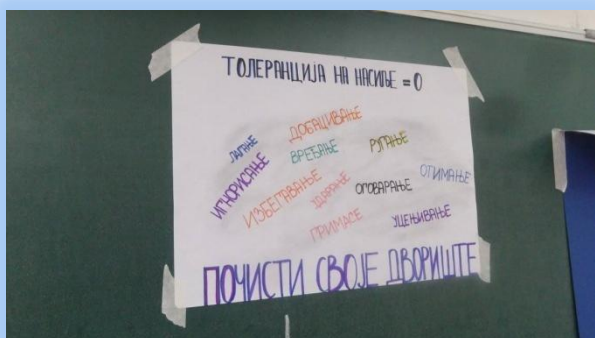 ТОЛЕРАНЦИЈА НА НАСИЉЕ = 0
ЛАГАЊЕ
ДОБАЦИВАЊЕ
ИГНОРИСАЊЕ
ВРЕЂАЊЕ
РУГАЊЕ
ИЗБЕГАВАЊЕ
УДАРАЊЕ
ОГОВАРАЊЕ
ОТИМАЊЕ
ГРИМАСЕ
УЦЕЊИВАЊЕ
ПОЧИСТИ СВОЈЕ ДВОРИШТЕ